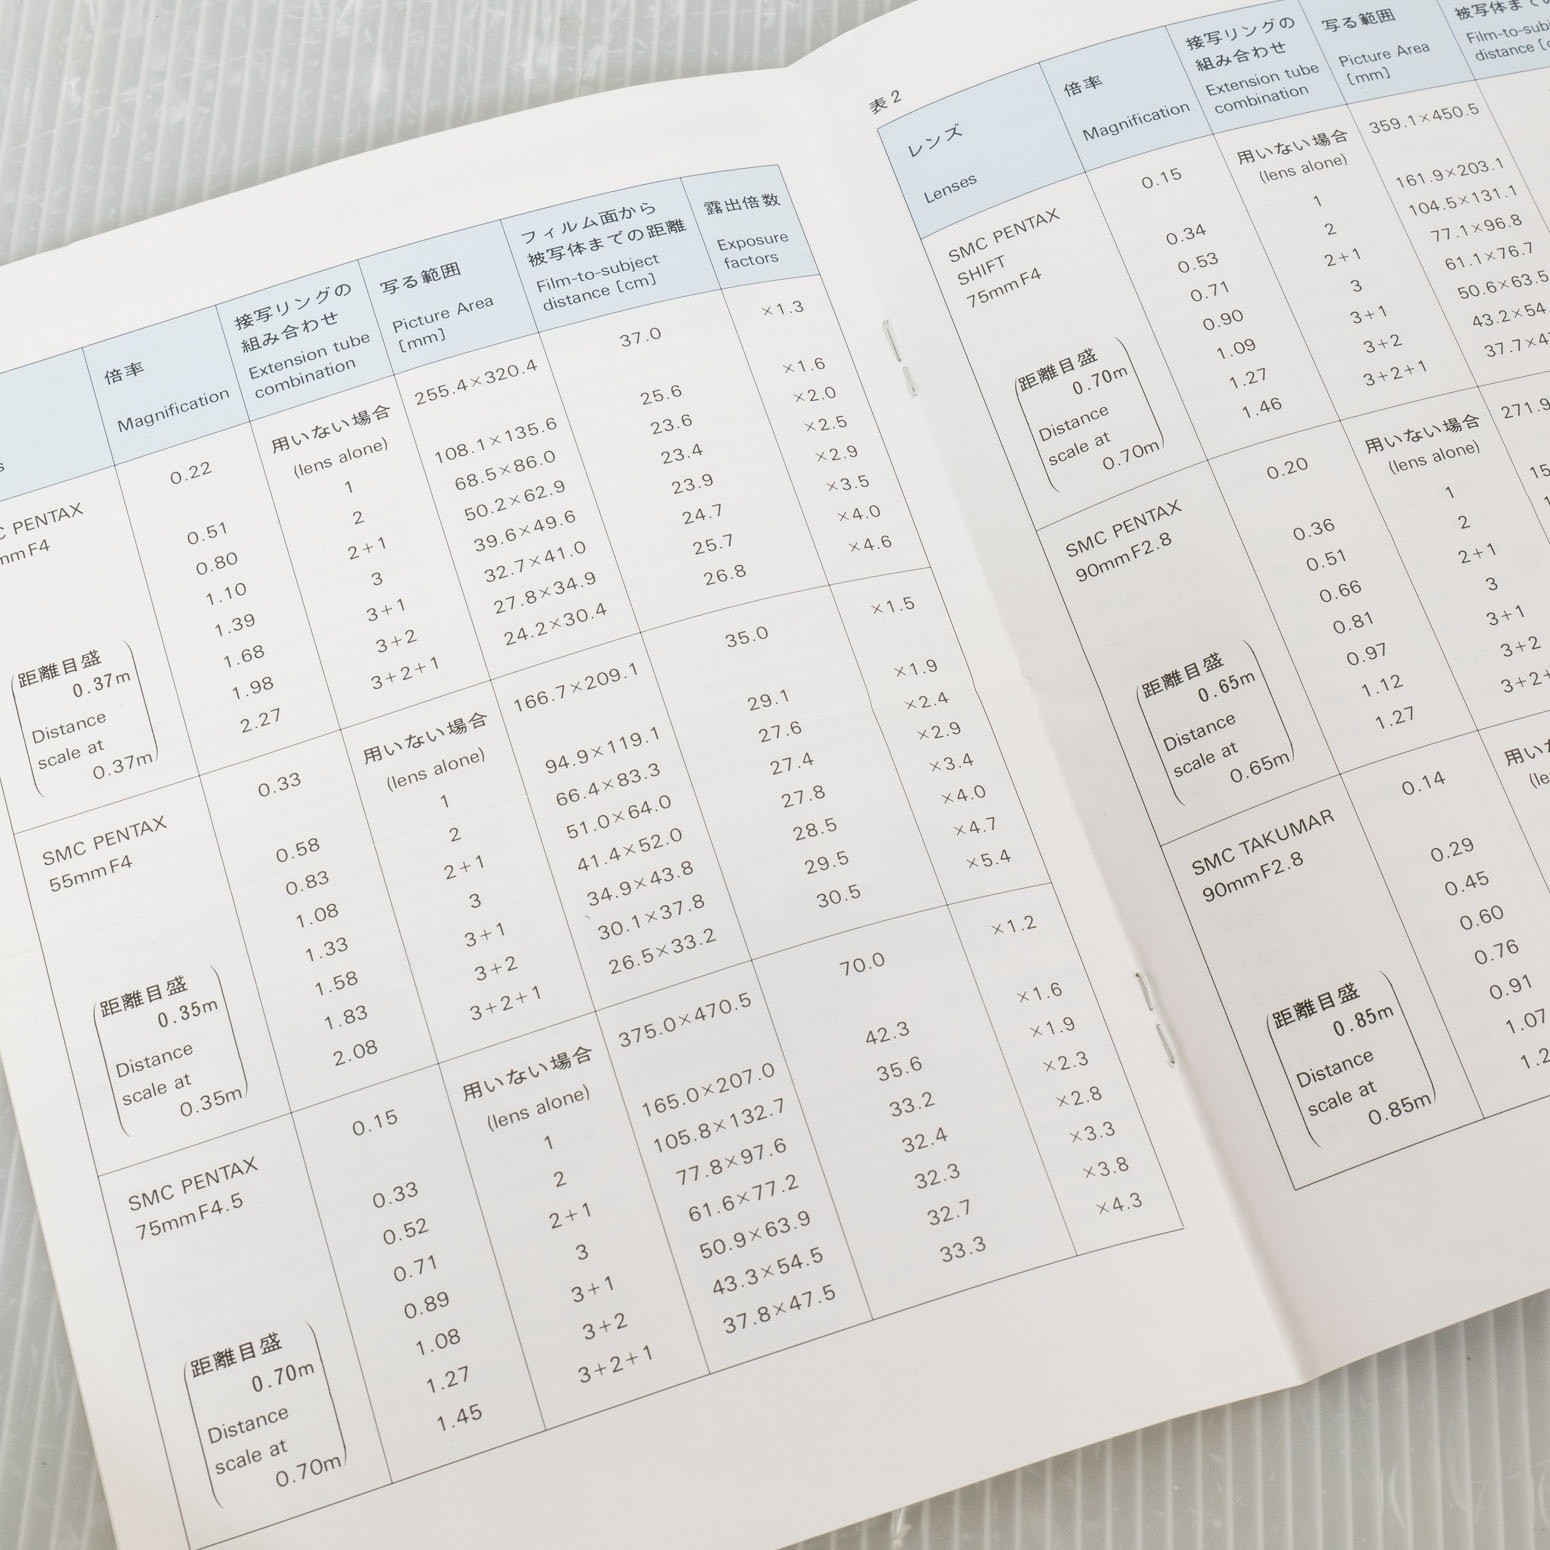 倍率
Magnification
接写リングの
組み合わせ
Extension tube
combination
写る範囲
Picture Area
[mm]
フィルム面から
被写体までの距離
Film-to-subject
distance [cm]
露出倍数
Exposure
factors
PENTAX
F4
距離目盛
0.37m
Distance
scale at
0.37m
0.22 用いない場合 255.4×320.4 37.0 ×1.3
(lens alone)
0.51 1 108.1×135.6 25.6 ×1.6
0.80 2 68.5×86.0 23.6 ×2.0
1.10 2+1 50.2×62.9 23.4 ×2.5
1.39 3 39.6×49.6 23.9 ×2.9
1.68 3+1 32.7×41.0 24.7 ×3.5
1.98 3+2 27.8×34.9 25.7 ×4.0
2.27 3+2+1 24.2×30.4 26.8 ×4.6
SMC PENTAX
55mmF4
距離目盛
0.35m
Distance
scale at
0.35m
0.33 用いない場合 166.7×209.1 35.0 ×1.5
(lens alone)
0.58 1 94.9×119.1 29.1 ×1.9
0.83 2 66.4×83.3 27.6 ×2.4
1.08 2+1 51.0×64.0 27.4 ×2.9
1.33 3 41.4×52.0 27.8 ×3.4
1.58 3+1 34.9×43.8 28.5 ×4.0
1.83 3+2 30.1×37.8 29.5 ×4.7
2.08 3+2+1 26.5×33.2 30.5 ×5.4
SMC PENTAX
75mmF4.5
距離目盛
0.70m
Distance
scale at
0.70m
0.15 用いない場合 375.0×470.5 70.0 ×1.2
(lens alone)
0.33 1 165.0×207.0 42.3 ×1.6
0.52 2 105.8×132.7 35.6 ×1.9
0.71 2+1 77.8×97.6 33.2 ×2.3
0.89 3 61.6×77.2 32.4 ×2.8
1.08 3+1 50.9×63.9 32.3 ×3.3
1.27 3+2 43.3×54.5 32.7 ×3.8
1.45 3+2+1 37.8×47.5 33.3 ×4.3
表2
レンズ
Lenses
倍率
Magnification
接写リングの
組み合わせ
Extension tube
combination
写る範囲
Picture Area
[mm]
被写体まで
distance
SMC PENTAX
SHIFT
75mmF4
距離目盛
0.70m
Distance
scale at
0.70m
0.15 用いない場合 359.1×450.5
(lens alone)
0.34 1 161.9×203.1
0.53 2 104.5×131.1
0.71 2+1 77.1×96.8
0.90 3 61.1×76.7
1.09 3+1 50.6×63.5
1.27 3+2 43.2×54.
1.46 3+2+1 37.7×4
SMC PENTAX
90mmF2.8
距離目盛
0.65m
Distance
scale at
0.65m
0.20 用いない場合 271.9
(lens alone)
0.36 1 15
0.51 2
0.66 2+1
0.81 3
0.97 3+1
1.12 3+2
1.27 3+2+
SMC TAKUMAR
90mmF2.8
距離目盛
0.85m
Distance
scale at
0.85m
0.14 用い
0.29
0.45
0.60
0.76
0.91
1.07
1.2